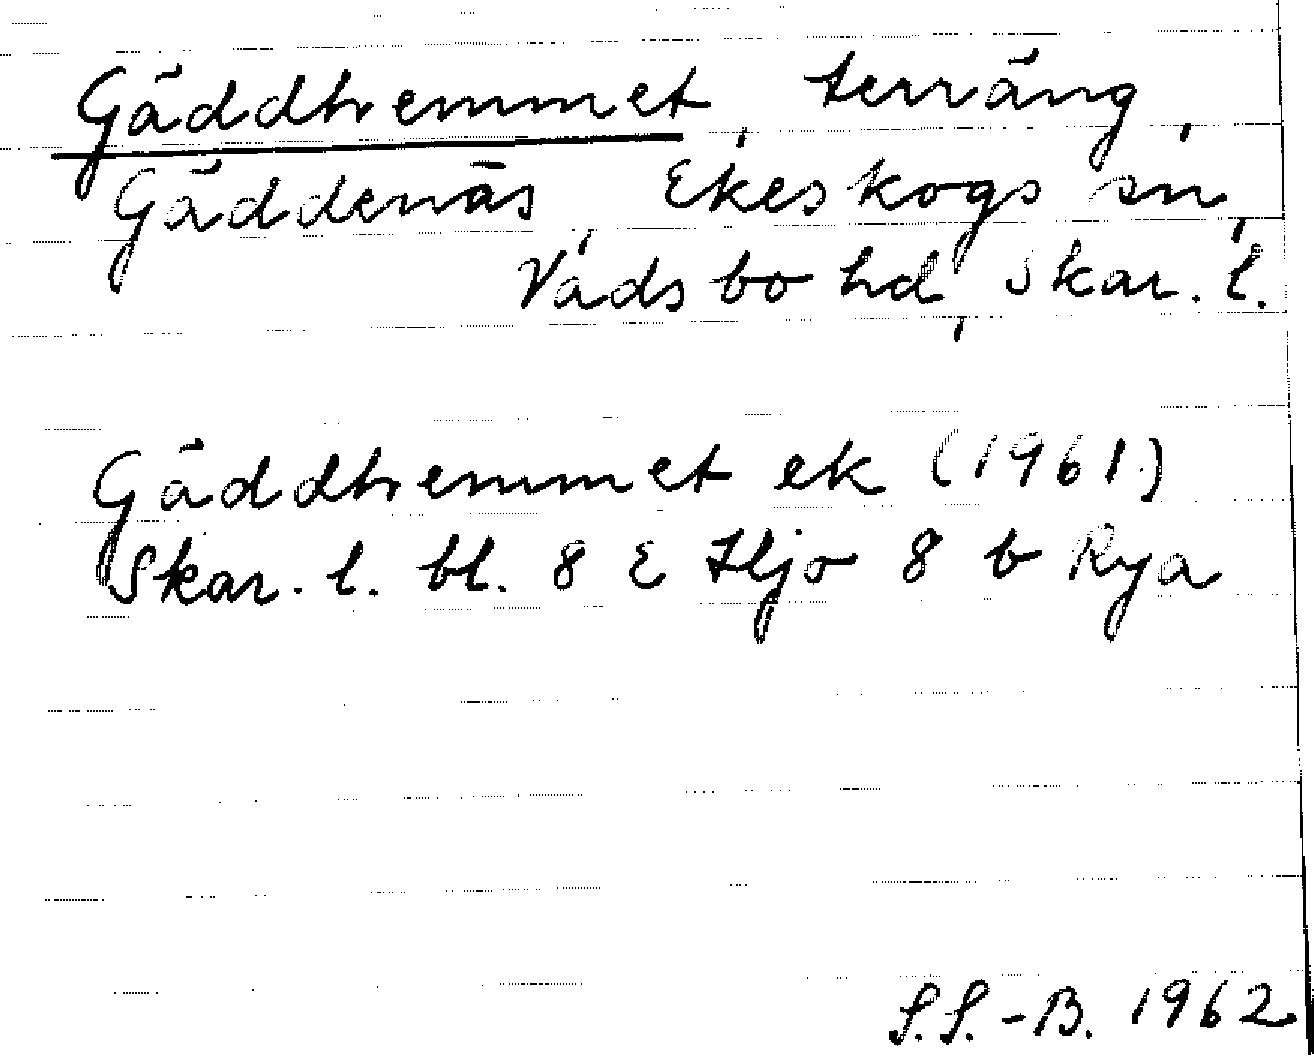 Gäddhemmet, terräng,
Gäddenäs, Ekeskogs sn,
Vadsbo hd, Skar. l.
Gäddhemmet ek (1961)
Skar. l. bl. 8 E Hjo 8 b Rya
S.S.-B. 1962